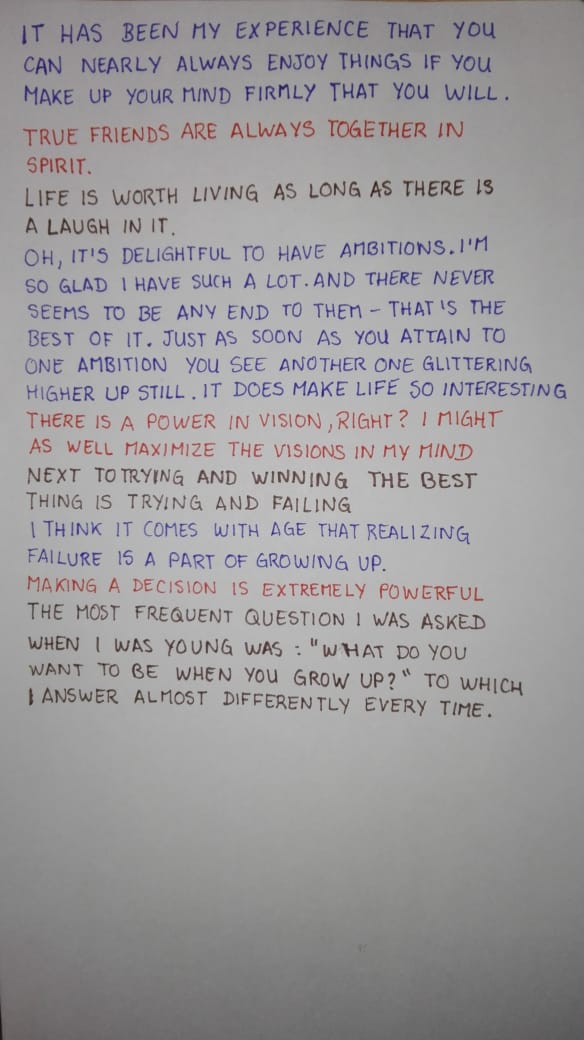 IT HAS BEEN MY EXPERIENCE THAT YOU
CAN NEARLY ALWAYS ENJOY THINGS IF YOU
MAKE UP YOUR MIND FIRMLY THAT YOU WILL.
TRUE FRIENDS ARE ALWAYS TOGETHER IN
SPIRIT.
LIFE IS WORTH LIVING AS LONG AS THERE IS
A LAUGH IN IT.
OH, IT'S DELIGHTFUL TO HAVE AMBITIONS. I'M
SO GLAD I HAVE SUCH A LOT. AND THERE NEVER
SEEMS TO BE ANY END TO THEM - THAT'S THE
BEST OF IT. JUST AS SOON AS YOU ATTAIN TO
ONE AMBITION YOU SEE ANOTHER ONE GLITTERING
HIGHER UP STILL. IT DOES MAKE LIFE SO INTERESTING
THERE IS A POWER IN VISION, RIGHT? I MIGHT
AS WELL MAXIMIZE THE VISIONS IN MY MIND
NEXT TO TRYING AND WINNING THE BEST
THING IS TRYING AND FAILING
I THINK IT COMES WITH AGE THAT REALIZING
FAILURE IS A PART OF GROWING UP.
MAKING A DECISION IS EXTREMELY POWERFUL
THE MOST FREQUENT QUESTION I WAS ASKED
WHEN I WAS YOUNG WAS : "WHAT DO YOU
WANT TO BE WHEN YOU GROW UP?" TO WHICH
I ANSWER ALMOST DIFFERENTLY EVERY TIME.